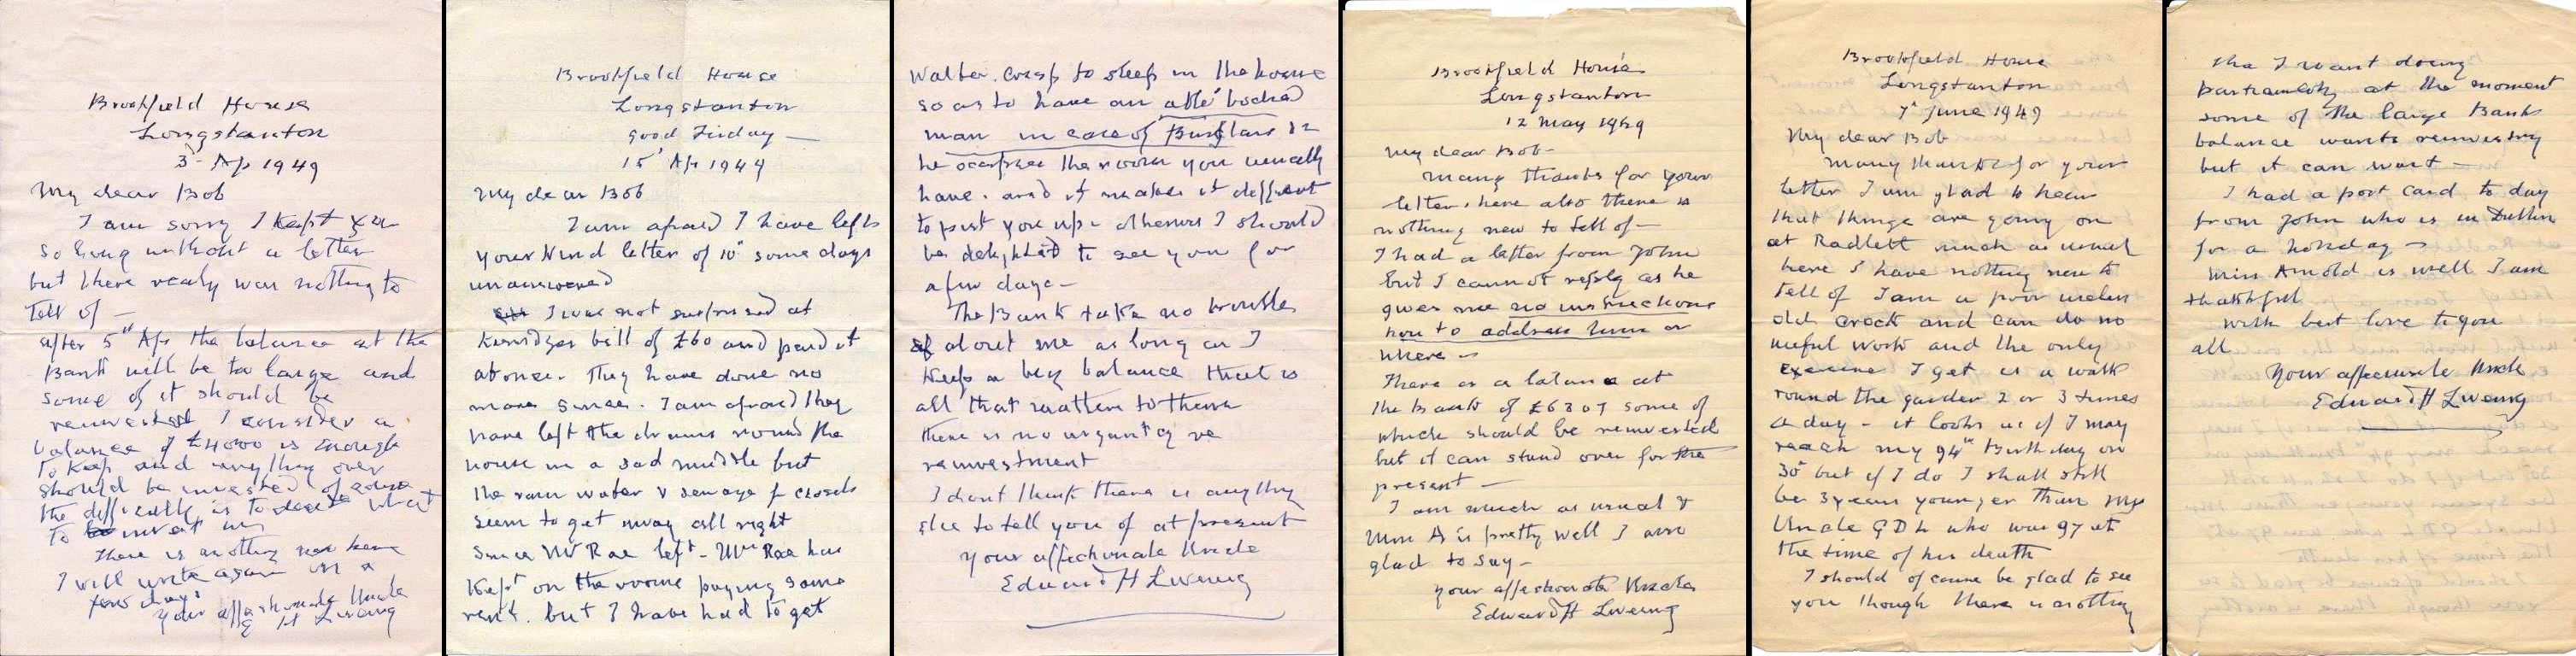 Brookfield House
Longstanton
3 Ap 1949
My dear Bob
I am sorry I kept you
so long without a letter
but there realy was nothing to
tell of —
after 5th Ap the balance at the
Bank will be to large and
some of it should be
reinvested I consider a
balance of £4000 is enough
to keep and anything over
should be invested of course
the difficulty is to decide what
to invest in
There is nothing new here
I will write again in a
few days
Your affectionate Uncle
E H Linening
Brookfield House
Longstanton
Good Friday —
15 Ap 1949
My dear Bob
I am afraid I have left
your kind letter of 10th some days
unanswered
I was not surprised at
bill of £60 and paid it
at once. They have done no
more since. I am afraid they
have left the drains round the
house in a sad muddle but
the rain water & sewage fr closets
seem to get away all right
since Mr Rae left - Mrs Rae has
kept on the rooms paying some
rent. but I have had to get
Walter. Crisp to sleep in the house
so as to have an able bodied
man in case of Burglars &
he occupies the room you usually
have. and it makes it different
to put you up - otherwis I should
be delighted to see you for
a few days —
The Bank take no trouble
about me as long as I
keep a big balance that is
all that matters to them
there is no urgency re
reinvestment
I dont think there is anything
else to tell you of at present
your affectionate Uncle
Edward H
Brookfield House
Longstanton
12 May 1949
My dear Bob -
Many thanks for your
letter. here also there is
nothing new to tell of —
I had a letter from John
but I cannot reply as he
gives me no instructions
how to address him or
where —
There is a balance at
the Bank of £6307 some of
which should be reinvested
but it can stand over for the
present —
I am much as usual &
Miss A is pretty well I am
glad to say —
your affectionate Uncle
Edward H
Brookfield House
Longstanton
7th June 1949
My dear Bob
Many thanks for your
letter I am glad to hear
that things are going on
at Radlett much as usual
here I have nothing new to
tell of I am a poor useless
old crock and can do no
useful work and the only
exercise I get is a walk
round the garden 2 or 3 times
a day - it looks as if I may
reach my 94th Birthday on
30th but if I do I shall still
be 3 years younger than my
Uncle G D L who was 97 at
the time of his death
I should of course be glad to see
you though there is nothing
tha I want doing
particularly at the moment
some of the large Bank
balance wants reinvesting
but it can wait —
I had a post card to day
from John who is in Dublin
for a holiday —
Miss Arnold is well I am
thankful
with best love to you
all
Your affectionate Uncle
Edward H